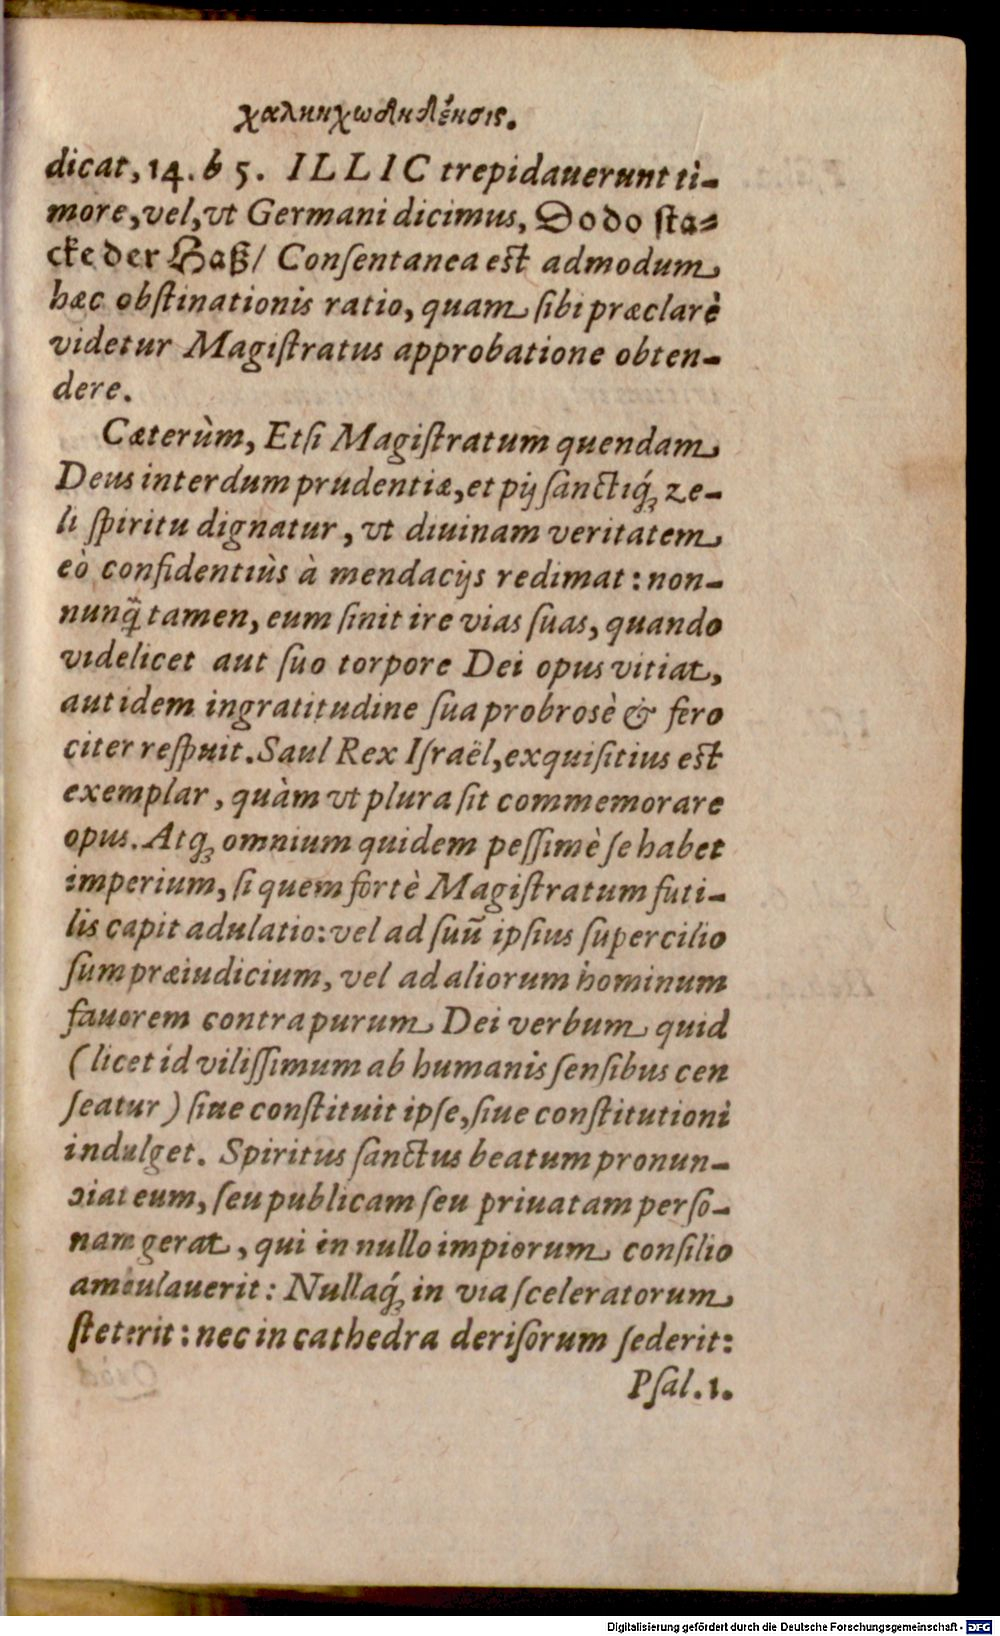 χαληηχωδηδέησις.
dicat, 14. b 5. ILLIC trepidauerunt ti-
more, vel, vt Germani dicimus, Do do sta-
cke der Haß/ Consentanea est admodum
hæc obstinationis ratio, quam sibi præclarè
videtur Magistratus approbatione obten-
dere.
Cæterùm, Etsi Magistratum quendam
Deus interdum prudentiæ, et pij sanctiq́; ze-
li spiritu dignatur, vt diuinam veritatem
eò confidentiùs à mendacijs redimat: non-
nunq̃ tamen, eum sinit ire vias suas, quando
videlicet aut suo torpore Dei opus vitiat,
aut idem ingratitudine sua probrosè & fero
citer respuit. Saul Rex Israël, exquisitius est
exemplar, quàm vt plura sit commemorare
opus. Atq; omnium quidem pessimè se habet
imperium, si quem fortè Magistratum futi-
lis capit adulatio: vel ad suũ ipsius supercilio
sum præiudicium, vel ad aliorum hominum
fauorem contra purum Dei verbum quid
(licet id vilissimum ab humanis sensibus cen
seatur) siue constituit ipse, siue constitutioni
indulget. Spiritus sanctus beatum pronun-
ciat eum, seu publicam seu priuatam perso-
nam gerat, qui in nullo impiorum consilio
ambulauerit: Nullaq́; in via sceleratorum
steterit: nec in cathedra derisorum sederit:
Psal. 1.
Digitalisierung gefördert durch die Deutsche Forschungsgemeinschaft - DFG